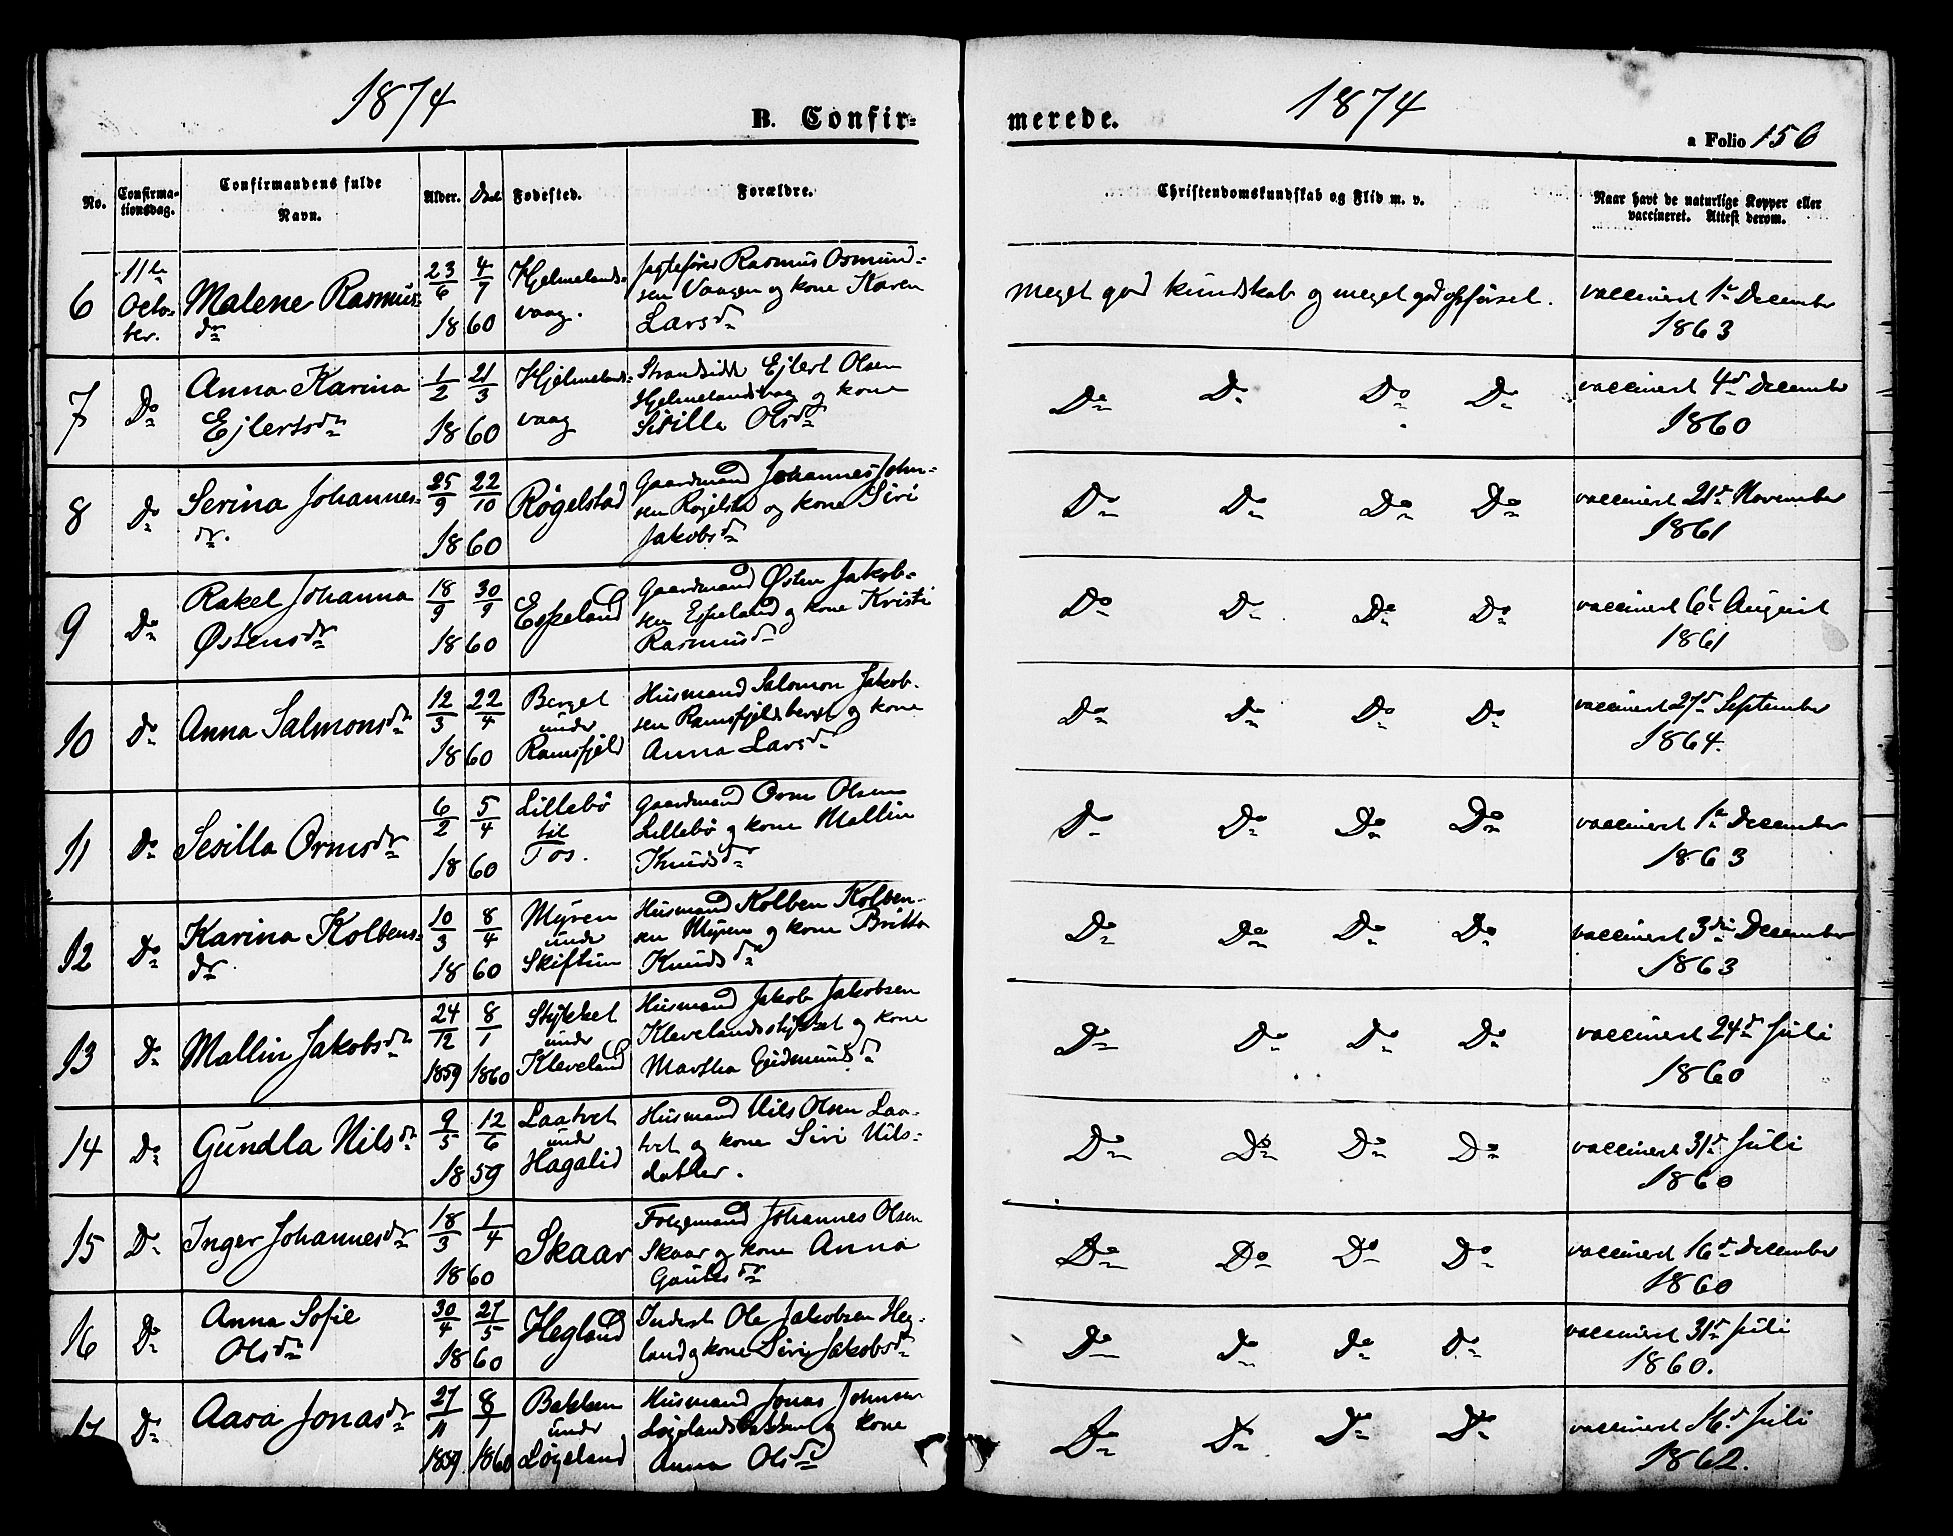 1874
B. Confir=
No.
Confirma-
tionsdag.
Confirmandens fulde
Navn.
Alder.
Døbt
Fødested.
Forældre.
6
11te
Octo-
ber.
Malene Rasmus-
dr
23/6 4/7
1860
Hjelmelands-
vaag.
Jægtefører Rasmus Osmund-
sen Vaagen og kone Karen
Larsdr
7
Do
Anna Karina
Ejlertsdr
1/2 21/3
1860
Hjelmelands-
vaag
Strandsidd Ejlert Olsen
Hjelmelandsvaag og kone
Sisilla Olsdr
8
Do
Serina Johannes-
dr.
25/9 22/10
1860
Røgelstad
Gaardmand Johannes John-
sen Røgelstad og kone Siri
Jakobsdr
9
Do
Rakel Johanna
Østensdr
18/9 30/9
1860
Espeland
Gaardmand Østen Jakob-
sen Espeland og kone Kristi
Rasmusdr
10
Do
Anna Salmonsdr
12/3 22/4
1860
Berget
under
Ramsfjeld
Husmand Salomon Jakob-
sen Ramsfjeldsberget og kone
Anna Larsdr
11
Do
Sesilla Ormsdr
6/2 5/4
1860
Lillebø
til
Tøs.
Gaardmand Orm Olsen
Lillebø og kone Mallin
Knudsdr
12
Do
Karina Kolbens-
dr
10/3 8/4
1860
Myren
under
Skiftun
Husmand Kolben Kolben-
sen Myren og kone Britta
Knudsdr
13
Do
Mallin Jakobsdr
24/12 8/1
1859 1860
Stykket
under
Kleveland
Husmand Jakob Jakobsen
Klevelandsstykket og kone
Martha Gudmundsdr
14
Do
Gundla Nilsdr
9/5 12/6
1859
Laatvet
under
Hagalid
Husmand Nils Olsen Laa-
tvet og kone Siri Nils-
datter.
15
Do
Inger Johannesdr
18/3 1/4
1860
Skaar
Folgemand Johannes Olsen
Skaar og kone Anna
Gautesdr
16
Do
Anna Sofie
Olsdr
30/4 27/5
1860
Hegland
Inderst Ole Jakobsen Heg-
land og kone Siri Jakobsdr
17
Do
Aasa Jonasdr
27/11 8/1
1859. 1860
Bakken
under
Løgeland
Husmand Jonas Johnsen
Løgelandsbakken og kone
Anna Olsdr
merede.
1874
a Folio 156
Christendomskundskab og Flid m. v.
Naar havt de naturlige Kopper eller
vaccineret. Attest derom.
Meget god kundskab og meget god opførsel.
vaccinert 1ste December
1863
Do Do Do Do
vaccinert 4de December
1860
Do Do Do Do
vaccinert 21de November
1861
Do Do Do Do
vaccinert 6te August
1861
Do Do Do Do
vaccinert 27de September
1864.
Do Do Do Do
vaccinert 1ste December
1863
Do Do Do Do
vaccinert 3die December
1863
Do Do Do Do
vaccinert 24de Juli
1860
Do Do Do Do
vaccinert 31te Juli
1860
Do Do Do Do
vaccinert 16de December
1860
Do Do Do Do
vaccinert 31te Juli
1860.
Do Do Do Do
vaccinert 16de Juli
1862.